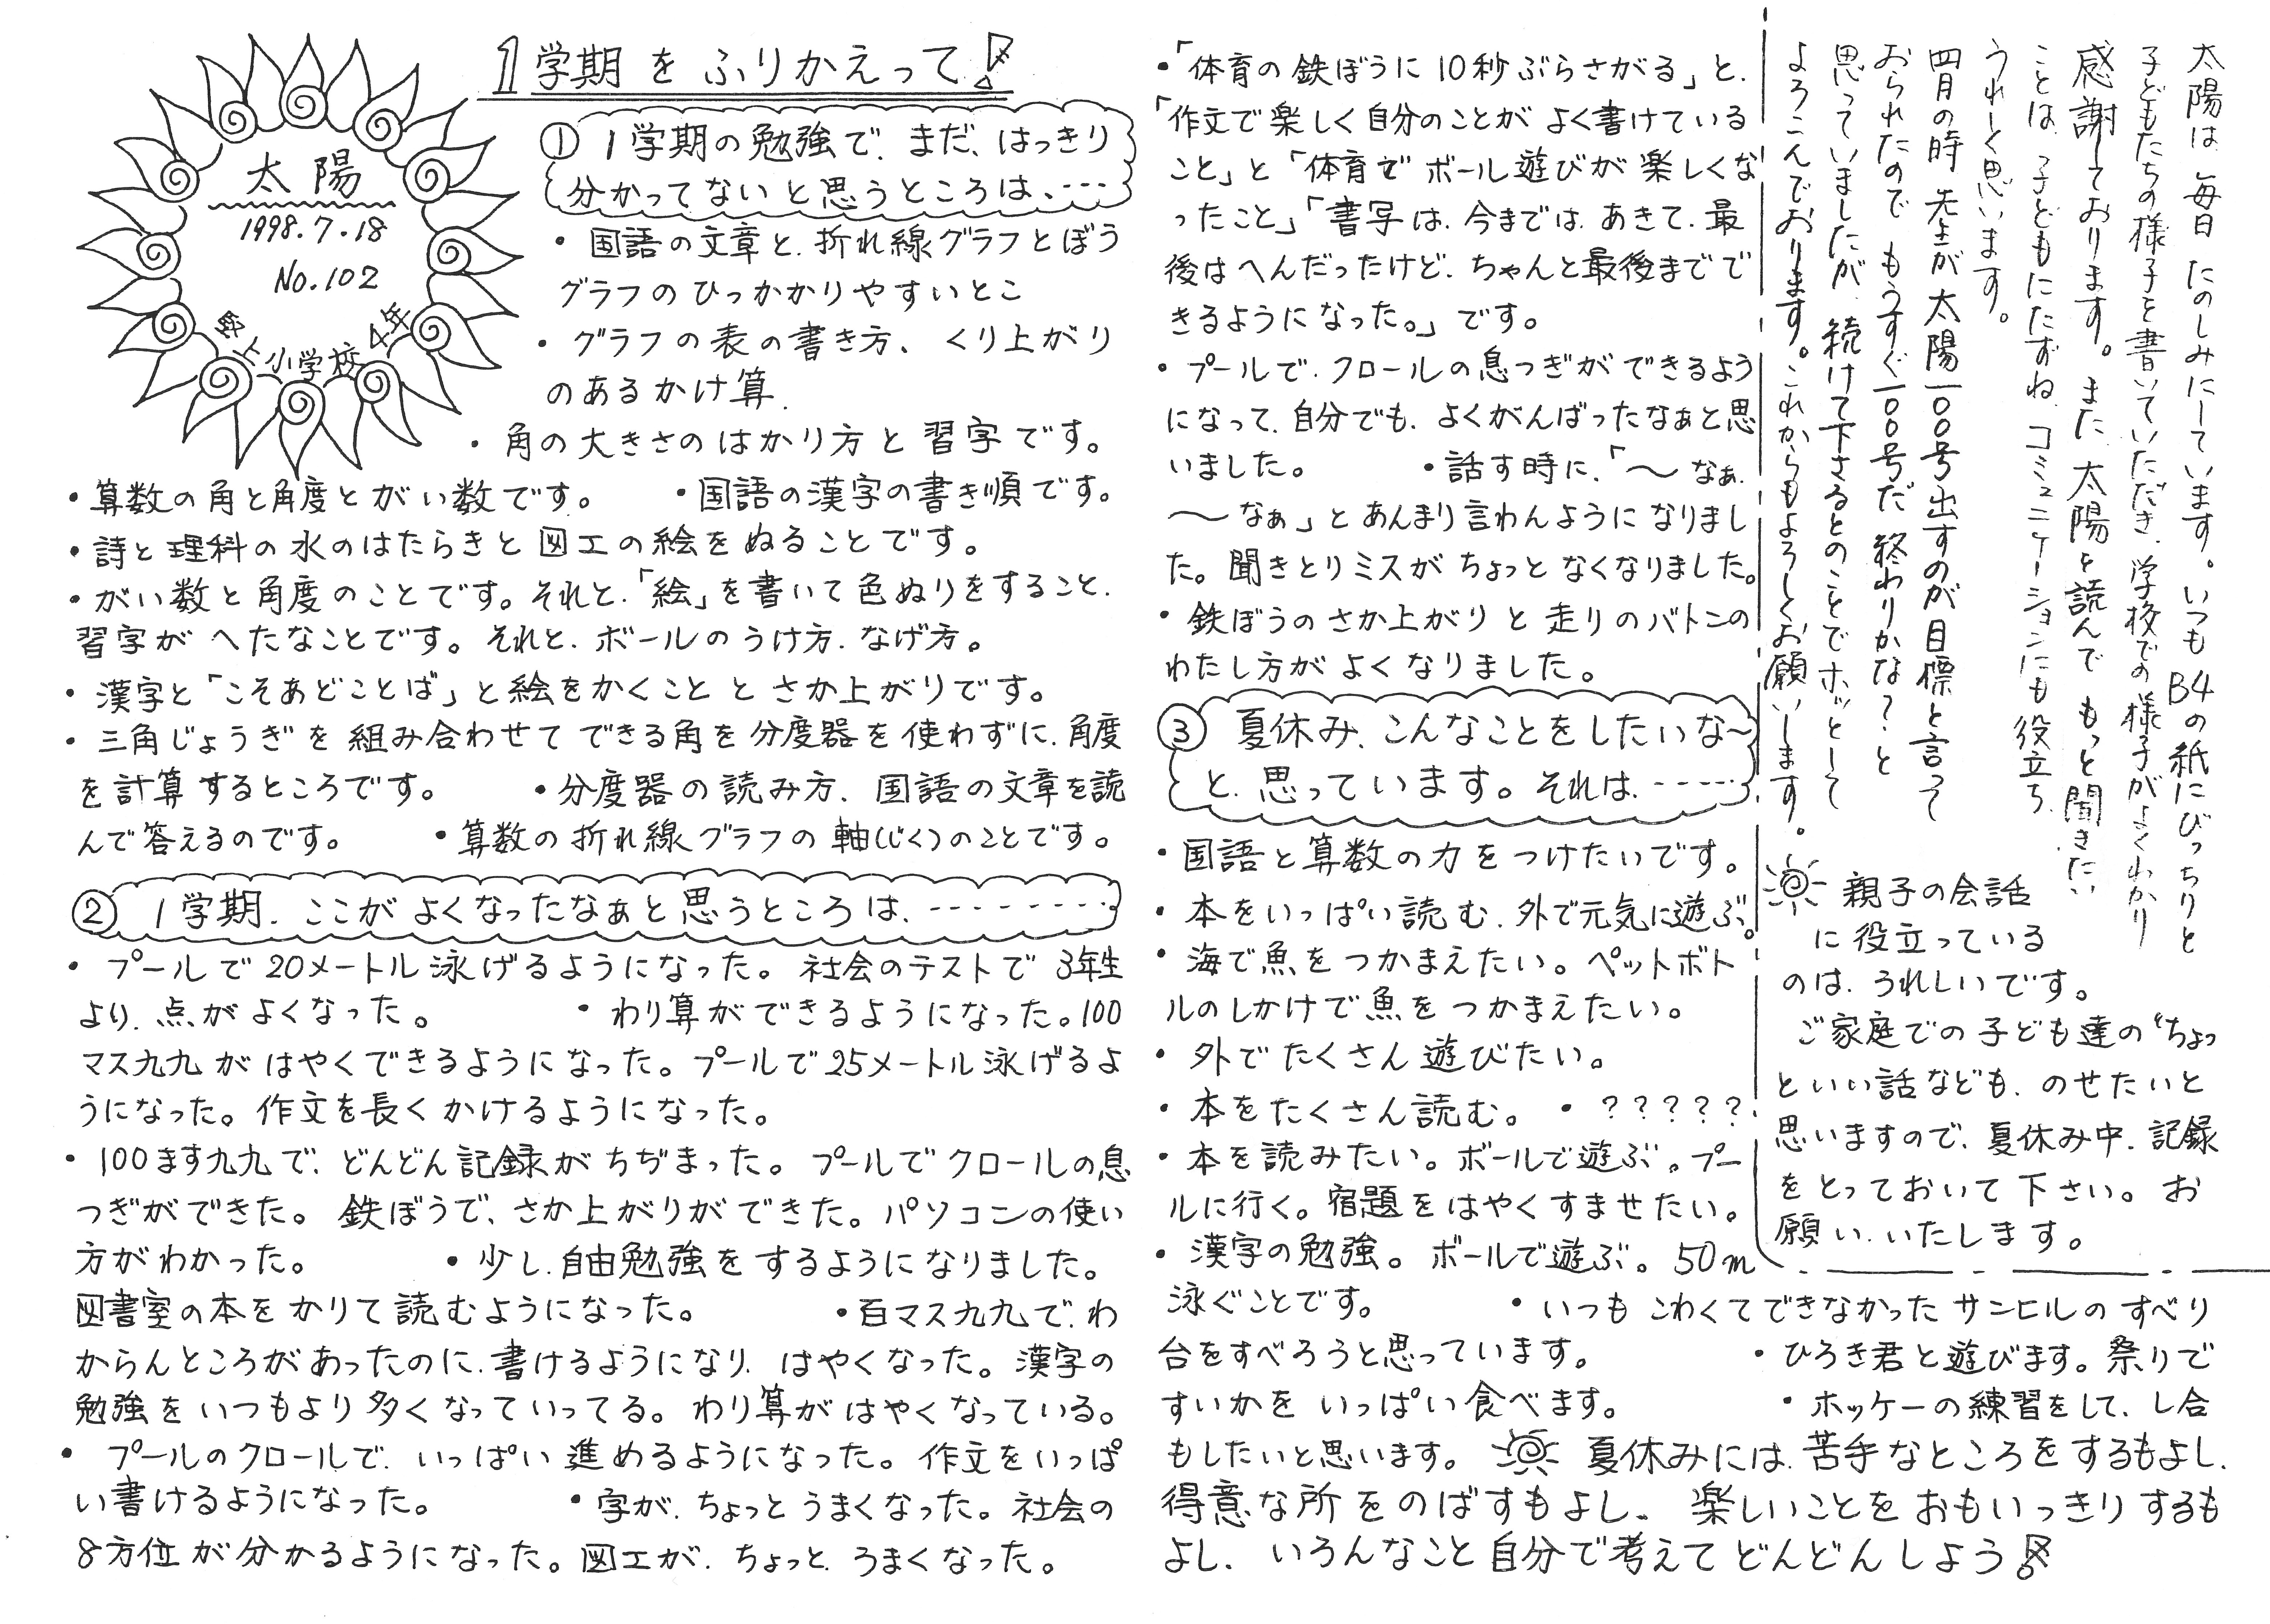 太陽
1998.7.18
No.102
上小学校4年
1学期をふりかえって!
① 1学期の勉強で、まだ、はっきり
分かってないと思うところは、…
・国語の文章と、折れ線グラフとぼう
グラフのひっかかりやすいとこ
・グラフの表の書き方、くり上がり
のあるかけ算、
・角の大きさのはかり方と習字です。
・算数の角と角度とがい数です。 ・国語の漢字の書き順です。
・詩と理科の水のはたらきと図工の絵をぬることです。
・がい数と角度のことです。それと、「絵」を書いて色ぬりをすること、
習字がへたなことです。それと、ボールのうけ方、なげ方。
・漢字と「こそあどことば」と絵をかくこととさか上がりです。
・三角じょうぎを組み合わせてできる角を分度器を使わずに、角度
を計算するところです。 ・分度器の読み方、国語の文章を読
んで答えるのです。 ・算数の折れ線グラフの軸(じく)のことです。
② 1学期、ここがよくなったなぁと思うところは、--------
・プールで20メートル泳げるようになった。社会のテストで3年生
より、点がよくなった。 ・わり算ができるようになった。100
マス九九がはやくできるようになった。プールで25メートル泳げるよ
うになった。作文を長くかけるようになった。
・100ます九九で、どんどん記録がちぢまった。プールでクロールの息
つぎができた。鉄ぼうで、さか上がりができた。パソコンの使い
方がわかった。 ・少し、自由勉強をするようになりました。
図書室の本をかりて読むようになった。 ・百マス九九で、わ
からんところがあったのに、書けるようになり、はやくなった。漢字の
勉強をいつもより多くなっていってる。わり算がはやくなっている。
・プールのクロールで、いっぱい進めるようになった。作文をいっぱ
い書けるようになった。 ・字が、ちょっとうまくなった。社会の
8方位が分かるようになった。図工が、ちょっと、うまくなった。
・「体育の鉄ぼうに10秒ぶらさがる」と、
「作文で楽しく自分のことがよく書けている
こと」と「体育でボール遊びが楽しくな
ったこと」「書写は、今までは、あきて、最
後はへんだったけど、ちゃんと最後までで
きるようになった。」です。
・プールで、クロールの息つぎができるよう
になって、自分でも、よくがんばったなぁと思
いました。 ・話す時に、「～なぁ、
～なぁ」とあんまり言わんようになりまし
た。聞きとりミスがちょっとなくなりました。
・鉄ぼうのさか上がりと走りのバトンの
わたし方がよくなりました。
③ 夏休み、こんなことをしたいな～
と、思っています。それは、-----
・国語と算数の力をつけたいです。
・本をいっぱい読む、外で元気に遊ぶ。
・海で魚をつかまえたい。ペットボト
ルのしかけで魚をつかまえたい。
・外でたくさん遊びたい。
・本をたくさん読む。 ・?????
・本を読みたい。ボールで遊ぶ。プー
ルに行く。宿題をはやくすませたい。
・漢字の勉強。ボールで遊ぶ。50m
泳ぐことです。 ・いつもこわくてできなかったサンヒルのすべり
台をすべろうと思っています。 ・ひろき君と遊びます。祭りで
すいかをいっぱい食べます。 ・ホッケーの練習をして、し合
もしたいと思います。 夏休みには、苦手なところをするもよし、
得意な所をのばすもよし、楽しいことをおもいっきりするも
よし、いろんなこと自分で考えてどんどんしよう!
太陽は、毎日たのしみにしています。いつもB4の紙にびっちりと
子どもたちの様子を書いていただき、学校での様子がよくわかり
感謝しております。また、太陽を読んでもっと聞きたい
ことは、子どもにたずね、コミュニケーションにも役立ち、
うれしく思います。
四月の時、先生が太陽一〇〇号出すのが目標と言って
おられたのでもうすぐ一〇〇号だ、終わりかな?と
思っていましたが、続けて下さるとのことでホッとして
よろこんでおります。これからもよろしくお願いします。
親子の会話
に役立っている
のは、うれしいです。
ご家庭での子ども達の“ちょっ
といい話なども、のせたいと
思いますので、夏休み中、記録
をとっておいて下さい。お
願い、いたします。